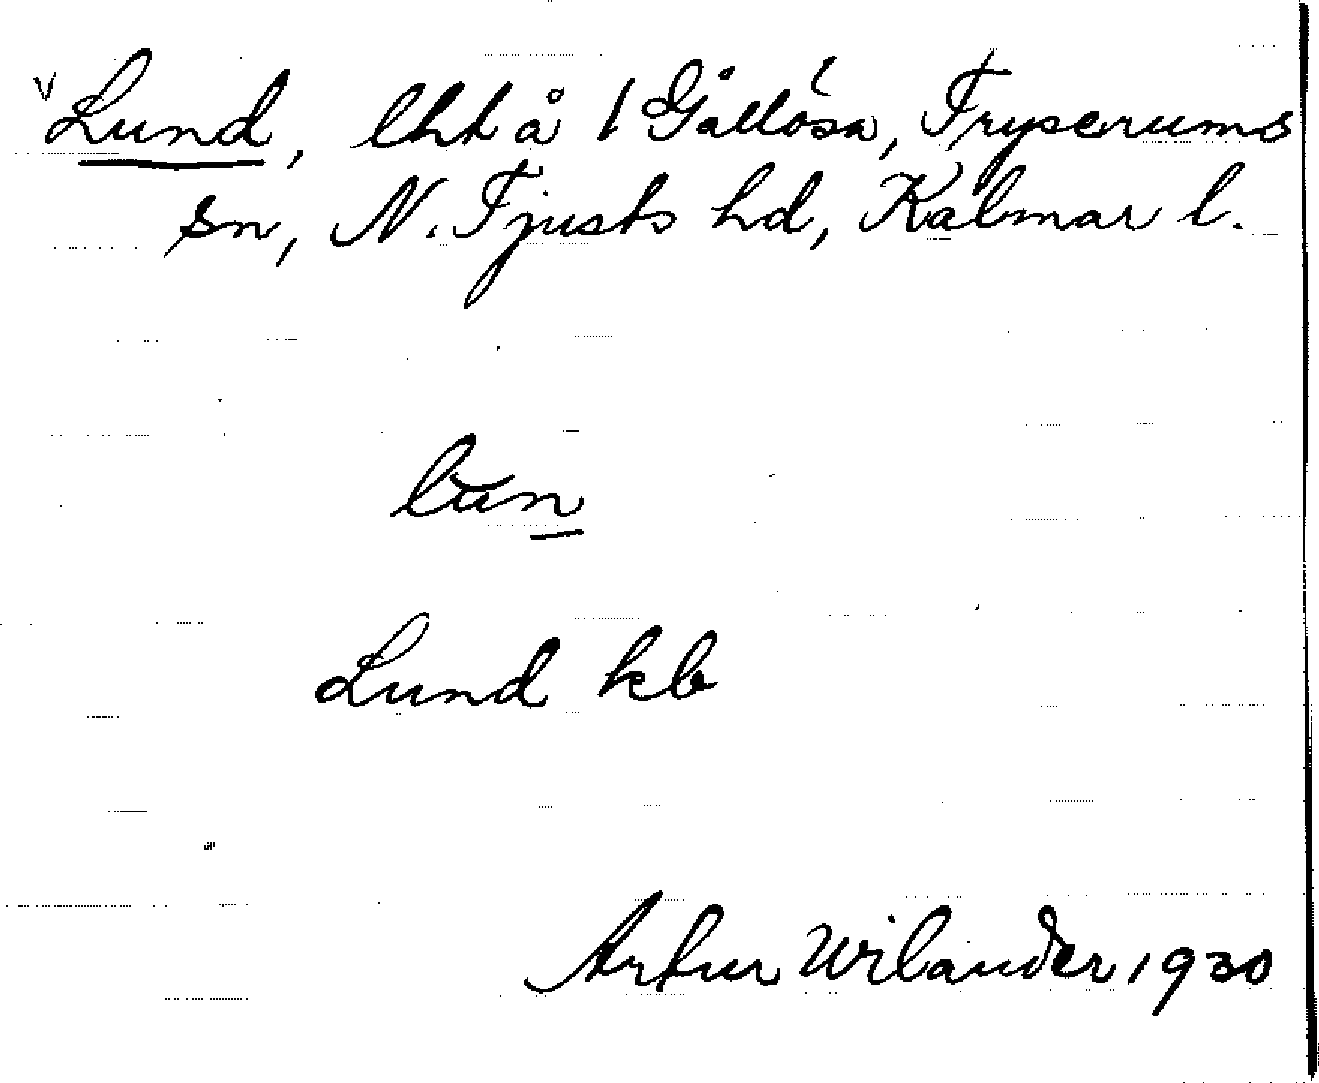 v Lund, lht å 1 Gållösa, Tryserums
sn, N. Tjusts hd, Kalmar l.
lun
Lund kb
Artur Wilander 1930